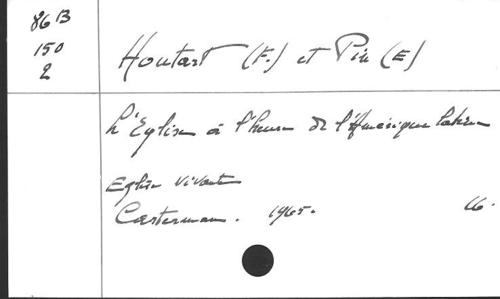 86 B
150
2
Houtart (F.) et Pin (E)
L'Eglise à l'heure de l'Amérique latine
Eglise vivante
Casterman. 1965.
16.